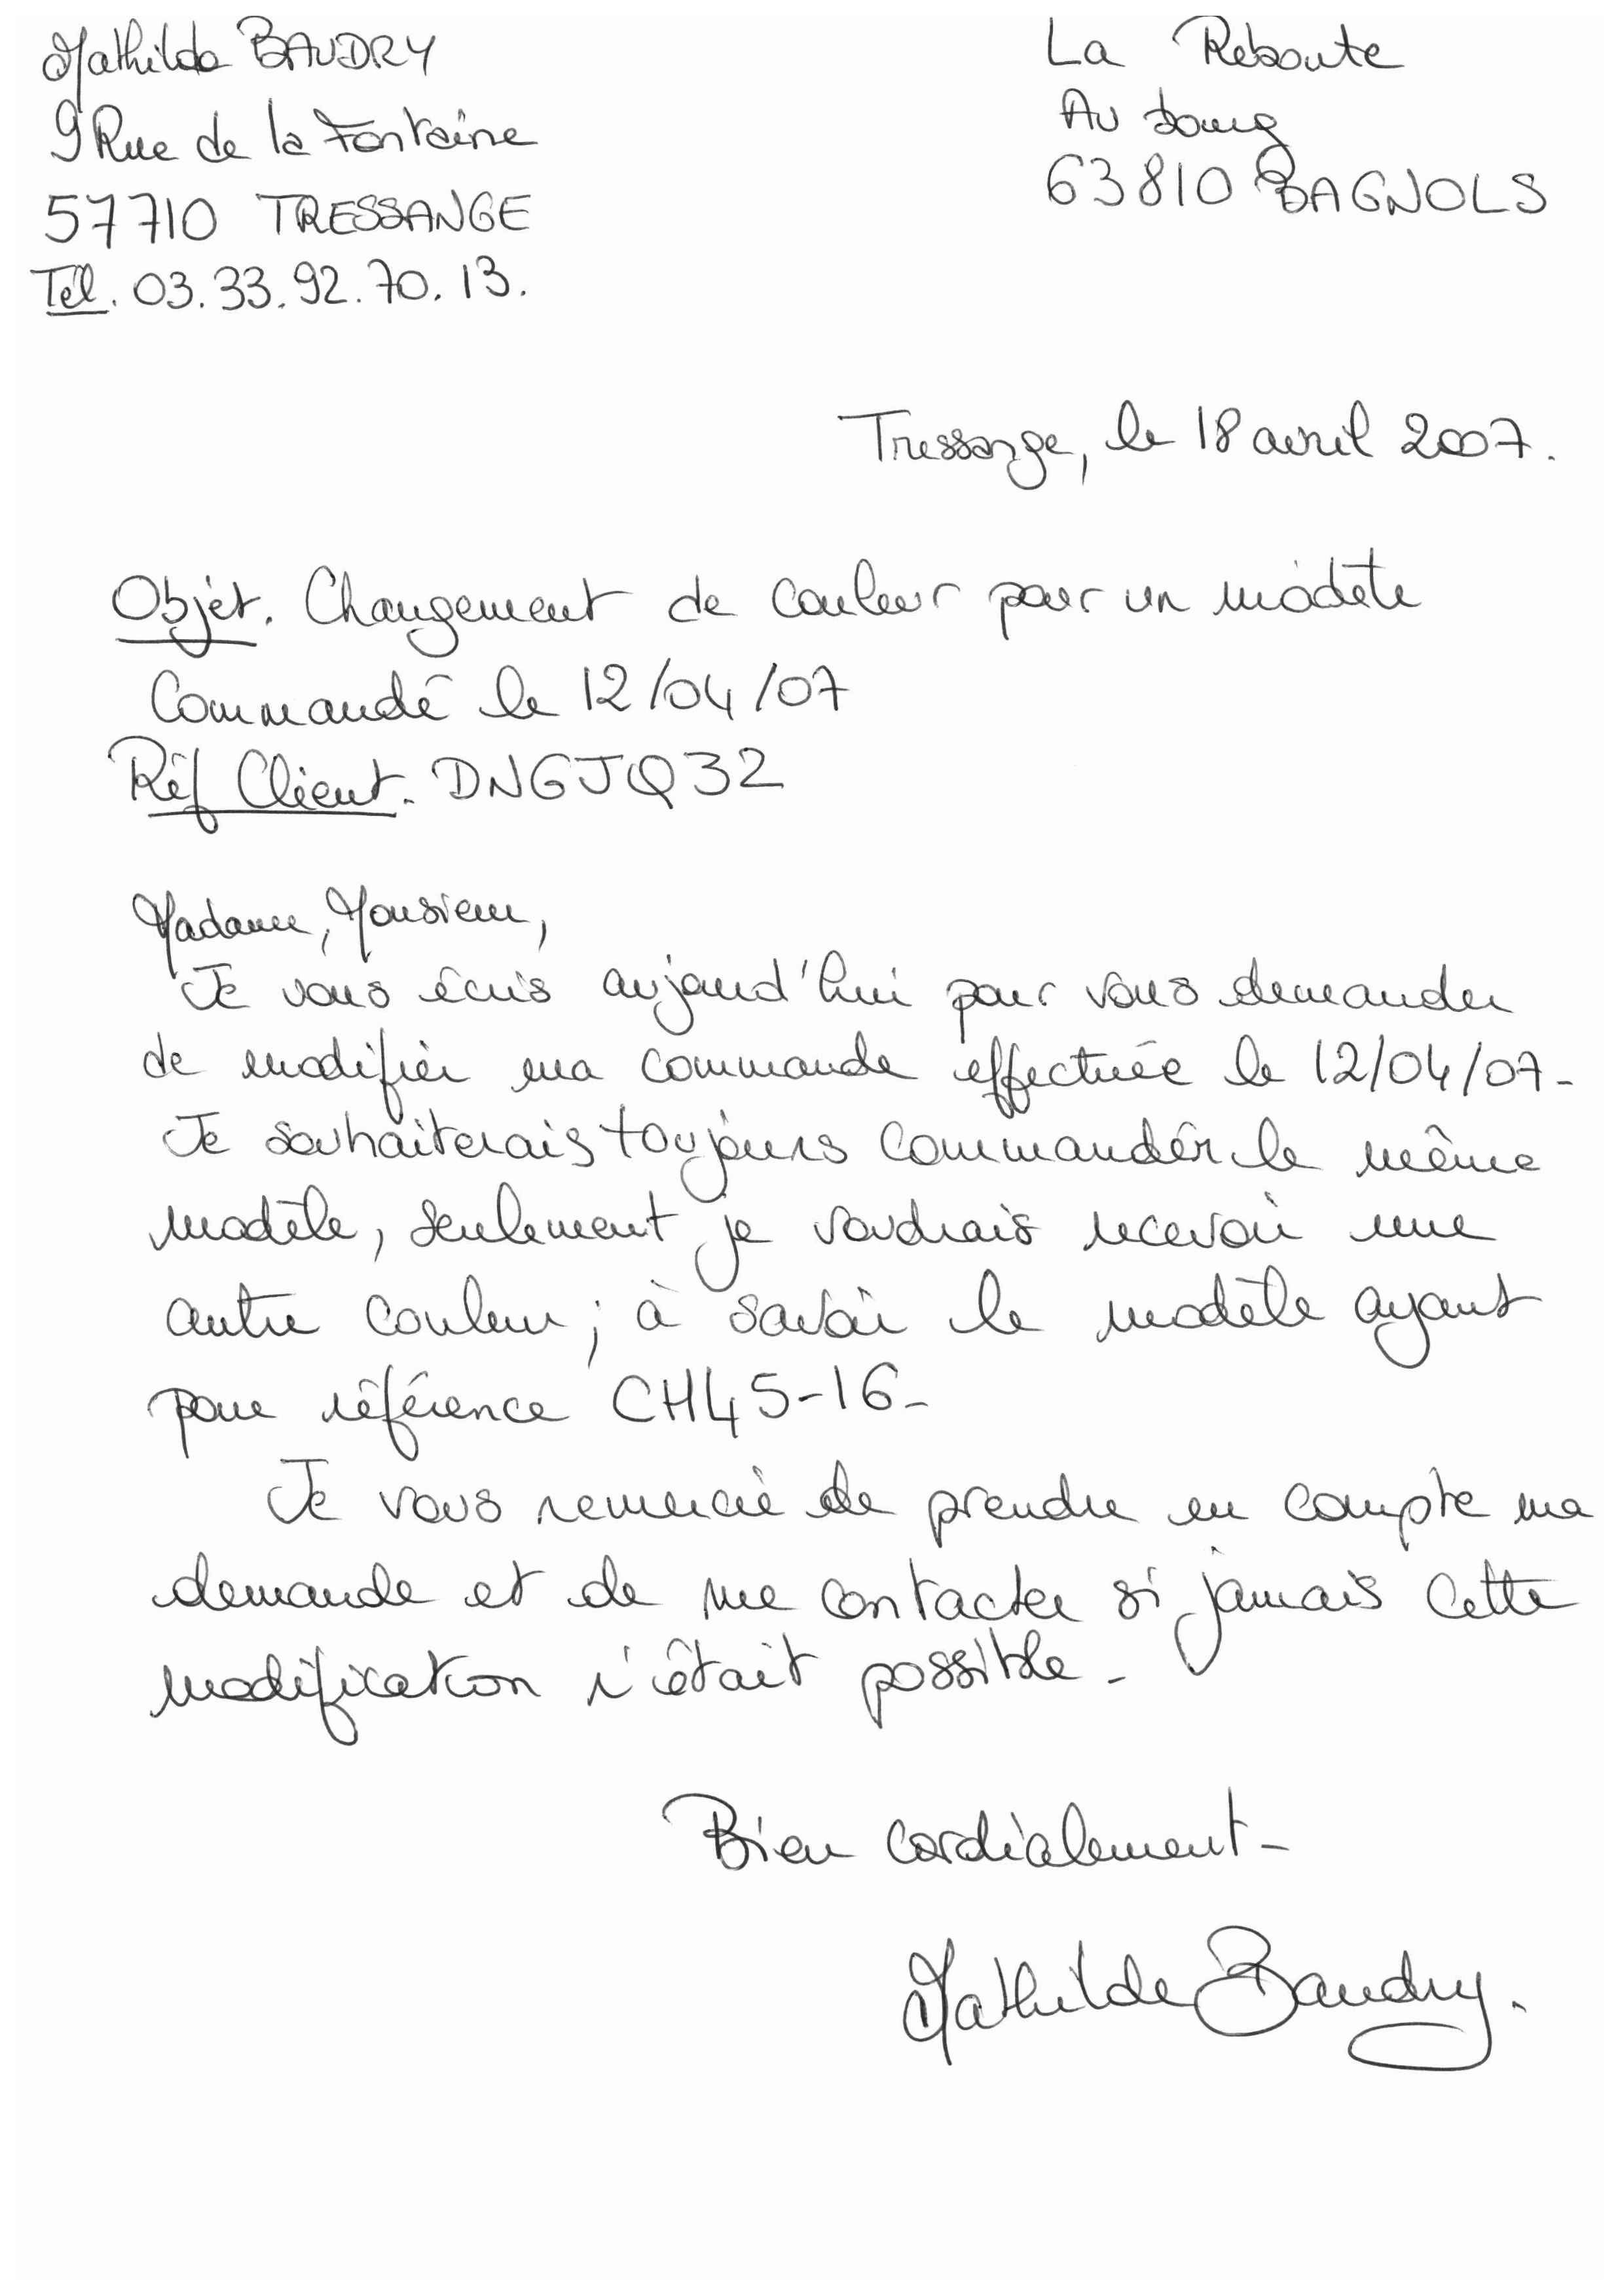 Mathilde BAUDRY
9 Rue de la Fontaine
57710 TRESSANGE
Tél. 03.33.92.70.13.
La Reboute
Au bourg
63810 BAGNOLS
Tressange, le 18 avril 2007.
Objet. Changement de couleur pour un modèle
Commandé le 12/04/07
Réf Client. DNGJQ32
Madame, Monsieur,
Je vous écris aujourd'hui pour vous demander
de modifier ma commande effectuée le 12/04/07-
Je souhaiterais toujours commander le même
modèle, seulement je voudrais recevoir une
autre couleur ; à savoir le modèle ayant
pour référence CH45-16-
Je vous remercie de prendre en compte ma
demande et de me contacter si jamais cette
modification n'était possible-
Bien cordialement-
Mathilde Baudry.